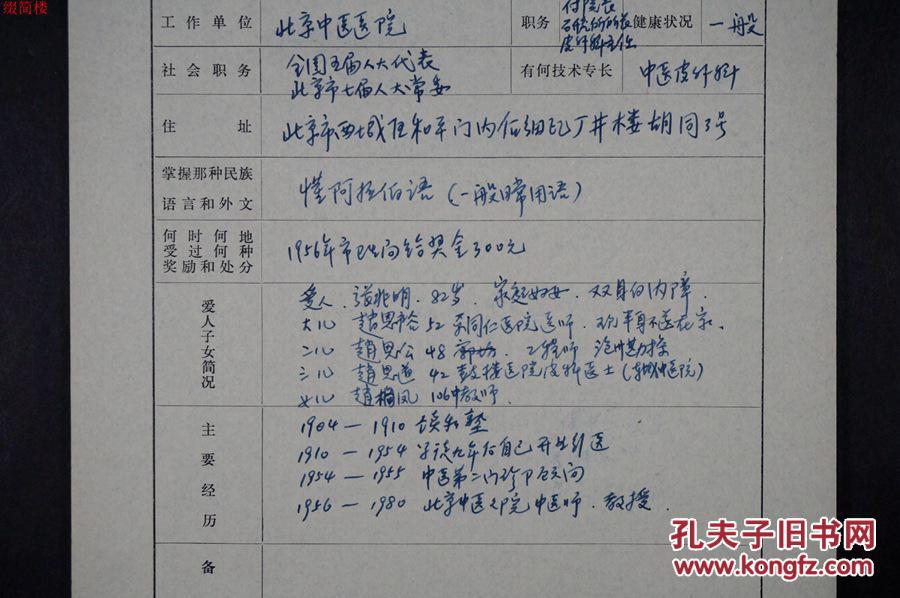 缀简楼
工作单位 北京中医医院 职务 付院长 研究所所长 皮外科主任 健康状况 一般
社会职务 全国五届人大代表 北京市七届人大常委 有何技术专长 中医皮外科
住址 北京市西城区和平门内后细瓦厂井楼胡同3号
掌握那种民族语言和外文 懂阿拉伯语（一般日常用语）
何时何地受过何种奖励和处分 1956年市卫生局给奖金300元
爱人子女简况
爱人 张兆明 82岁 家庭妇女 双目白内障
大儿 赵恩 52 同仁医院医师 现半身不遂在家
二儿 赵恩 48 工程师 勘探
三儿 赵恩道 42 鼓楼医院皮科医士（东城中医院）
女儿 赵 凤 106中教师
主要经历
1904 — 1910 读私塾
1910 — 1954 学徒九年后自己开业行医
1954 — 1955 中医第二门诊部顾问
1956 — 1980 北京中医医院 中医师、教授
备
孔夫子旧书网
www.kongfz.com